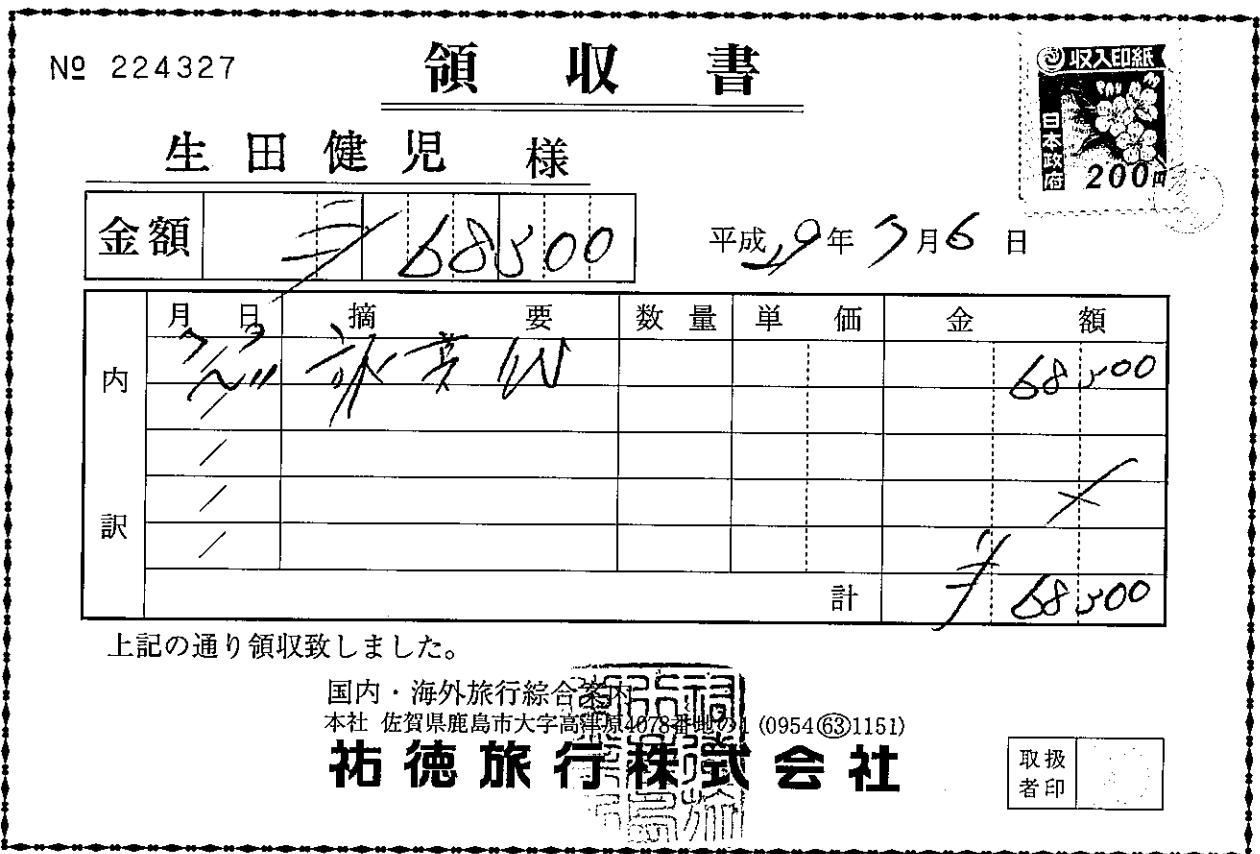 № 224327
領収書
収入印紙
日本政府
200円
生田健児 様
金額 68500
平成19年7月6日
月 日 摘要 数量 単価 金額
内訳
68500
計 68500
上記の通り領収致しました。
国内・海外旅行綜合案内
本社 佐賀県鹿島市大字高津原4078番地の1 (0954㊿1151)
祐徳旅行株式会社
取扱者印